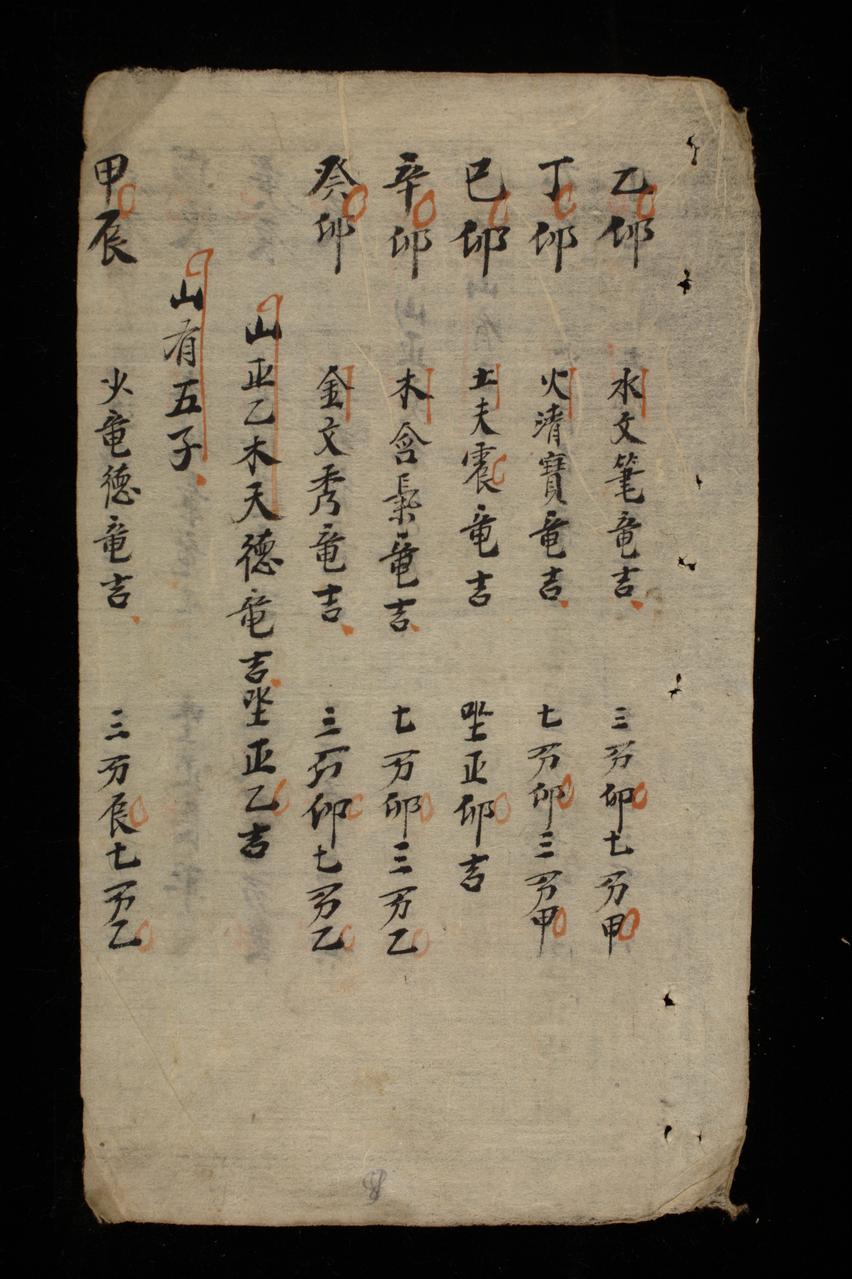 乙卯 水文筆竜吉 三分卯七分甲
丁卯 火清寶竜吉 七分卯三分甲
巳卯 土夫震竜吉 坐正卯吉
辛卯 木含梟竜吉 七分卯三分乙
癸卯 金文秀竜吉 三分卯七分乙
山正乙木天德竜吉坐正乙吉
山有五子
甲辰 火竜德竜吉 三分辰七分乙